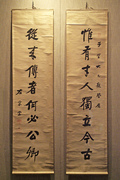 惟有才人獨立今古
從來傳者何必公卿